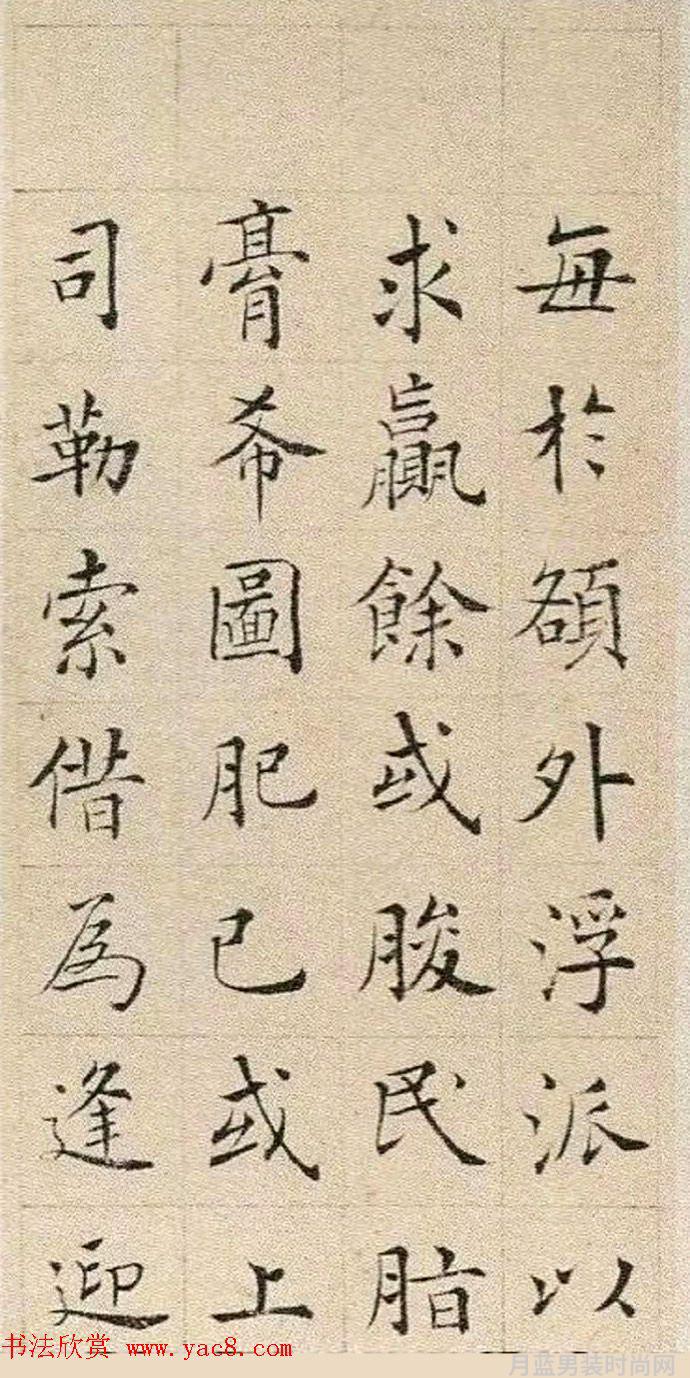 每於額外浮派以
求贏餘或朘民脂
膏希圖肥己或上
司勒索借為逢迎
书法欣赏 www.yac8.com
月蓝男装时尚网